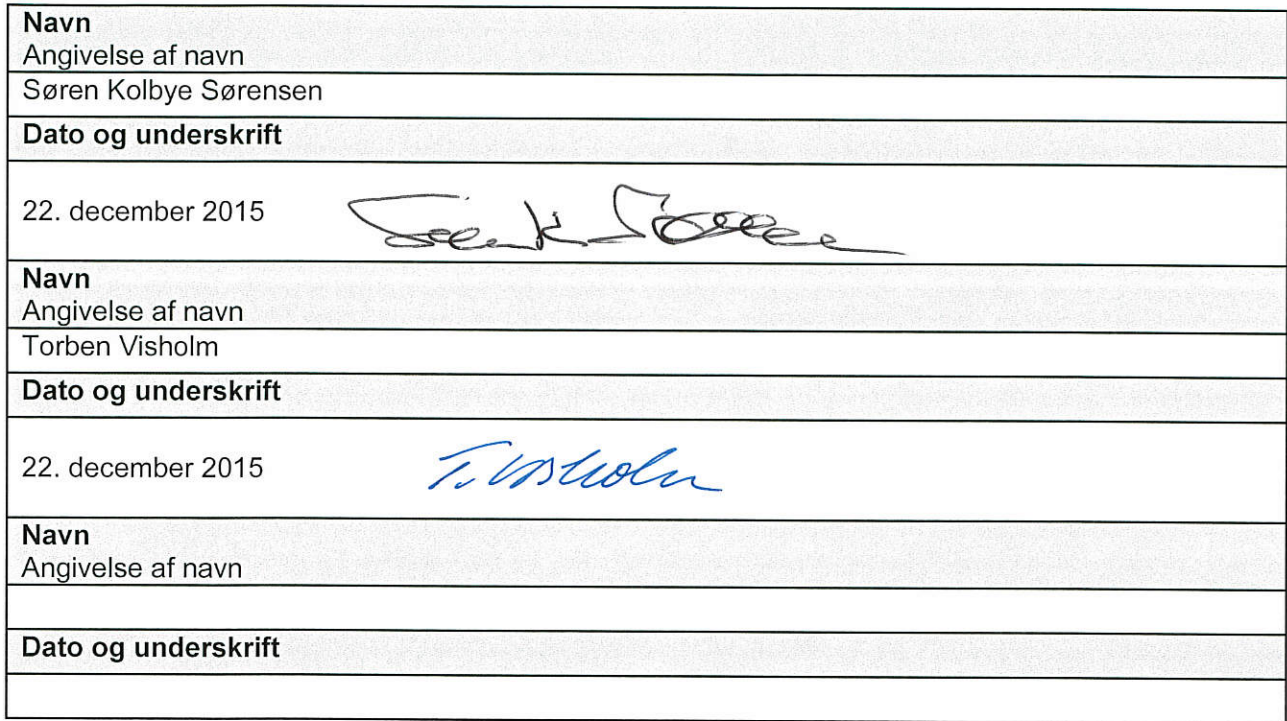 Navn
Angivelse af navn
Søren Kolbye Sørensen
Dato og underskrift
22. december 2015
Navn
Angivelse af navn
Torben Visholm
Dato og underskrift
22. december 2015 T. Visholm
Navn
Angivelse af navn
Dato og underskrift